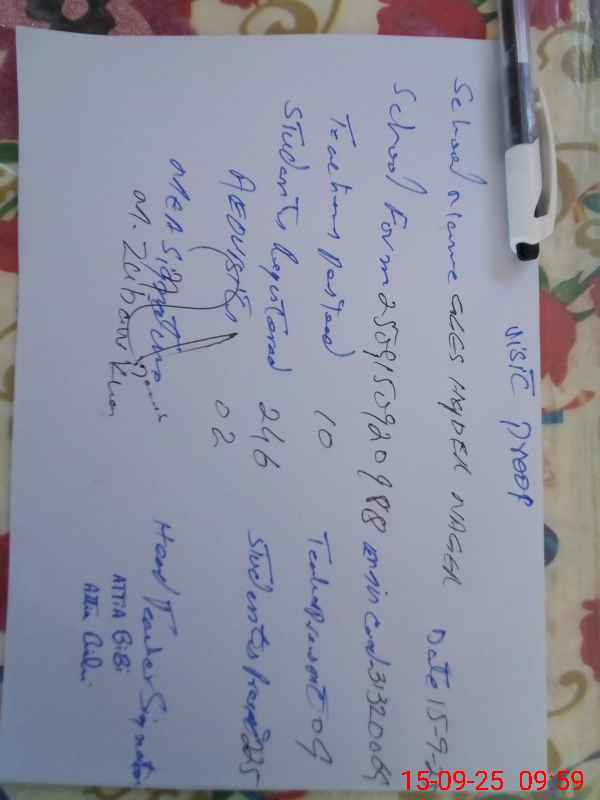 VISIT PROOF
School Name GGES HYDER NAGER Date 15-9-
School Form 250915092098B EMIS Code-31320009
Teachers Posted 10 Teacher Present 09
Students Registered 246 Students Present 225
02
MEA Signature Head Teacher Signature
M. Zubair Khan ATTIA BiBi
Attia BiBi
15-09-25 09:59